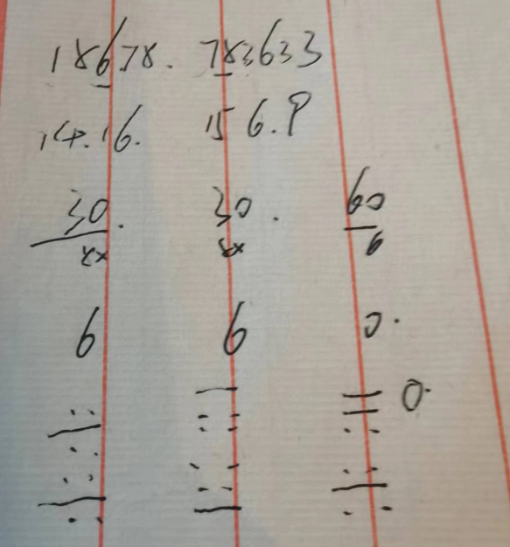 18678. 783633
14.16. 156.9
30. 30. 60
8x 8x 6
6 6 0.
0.